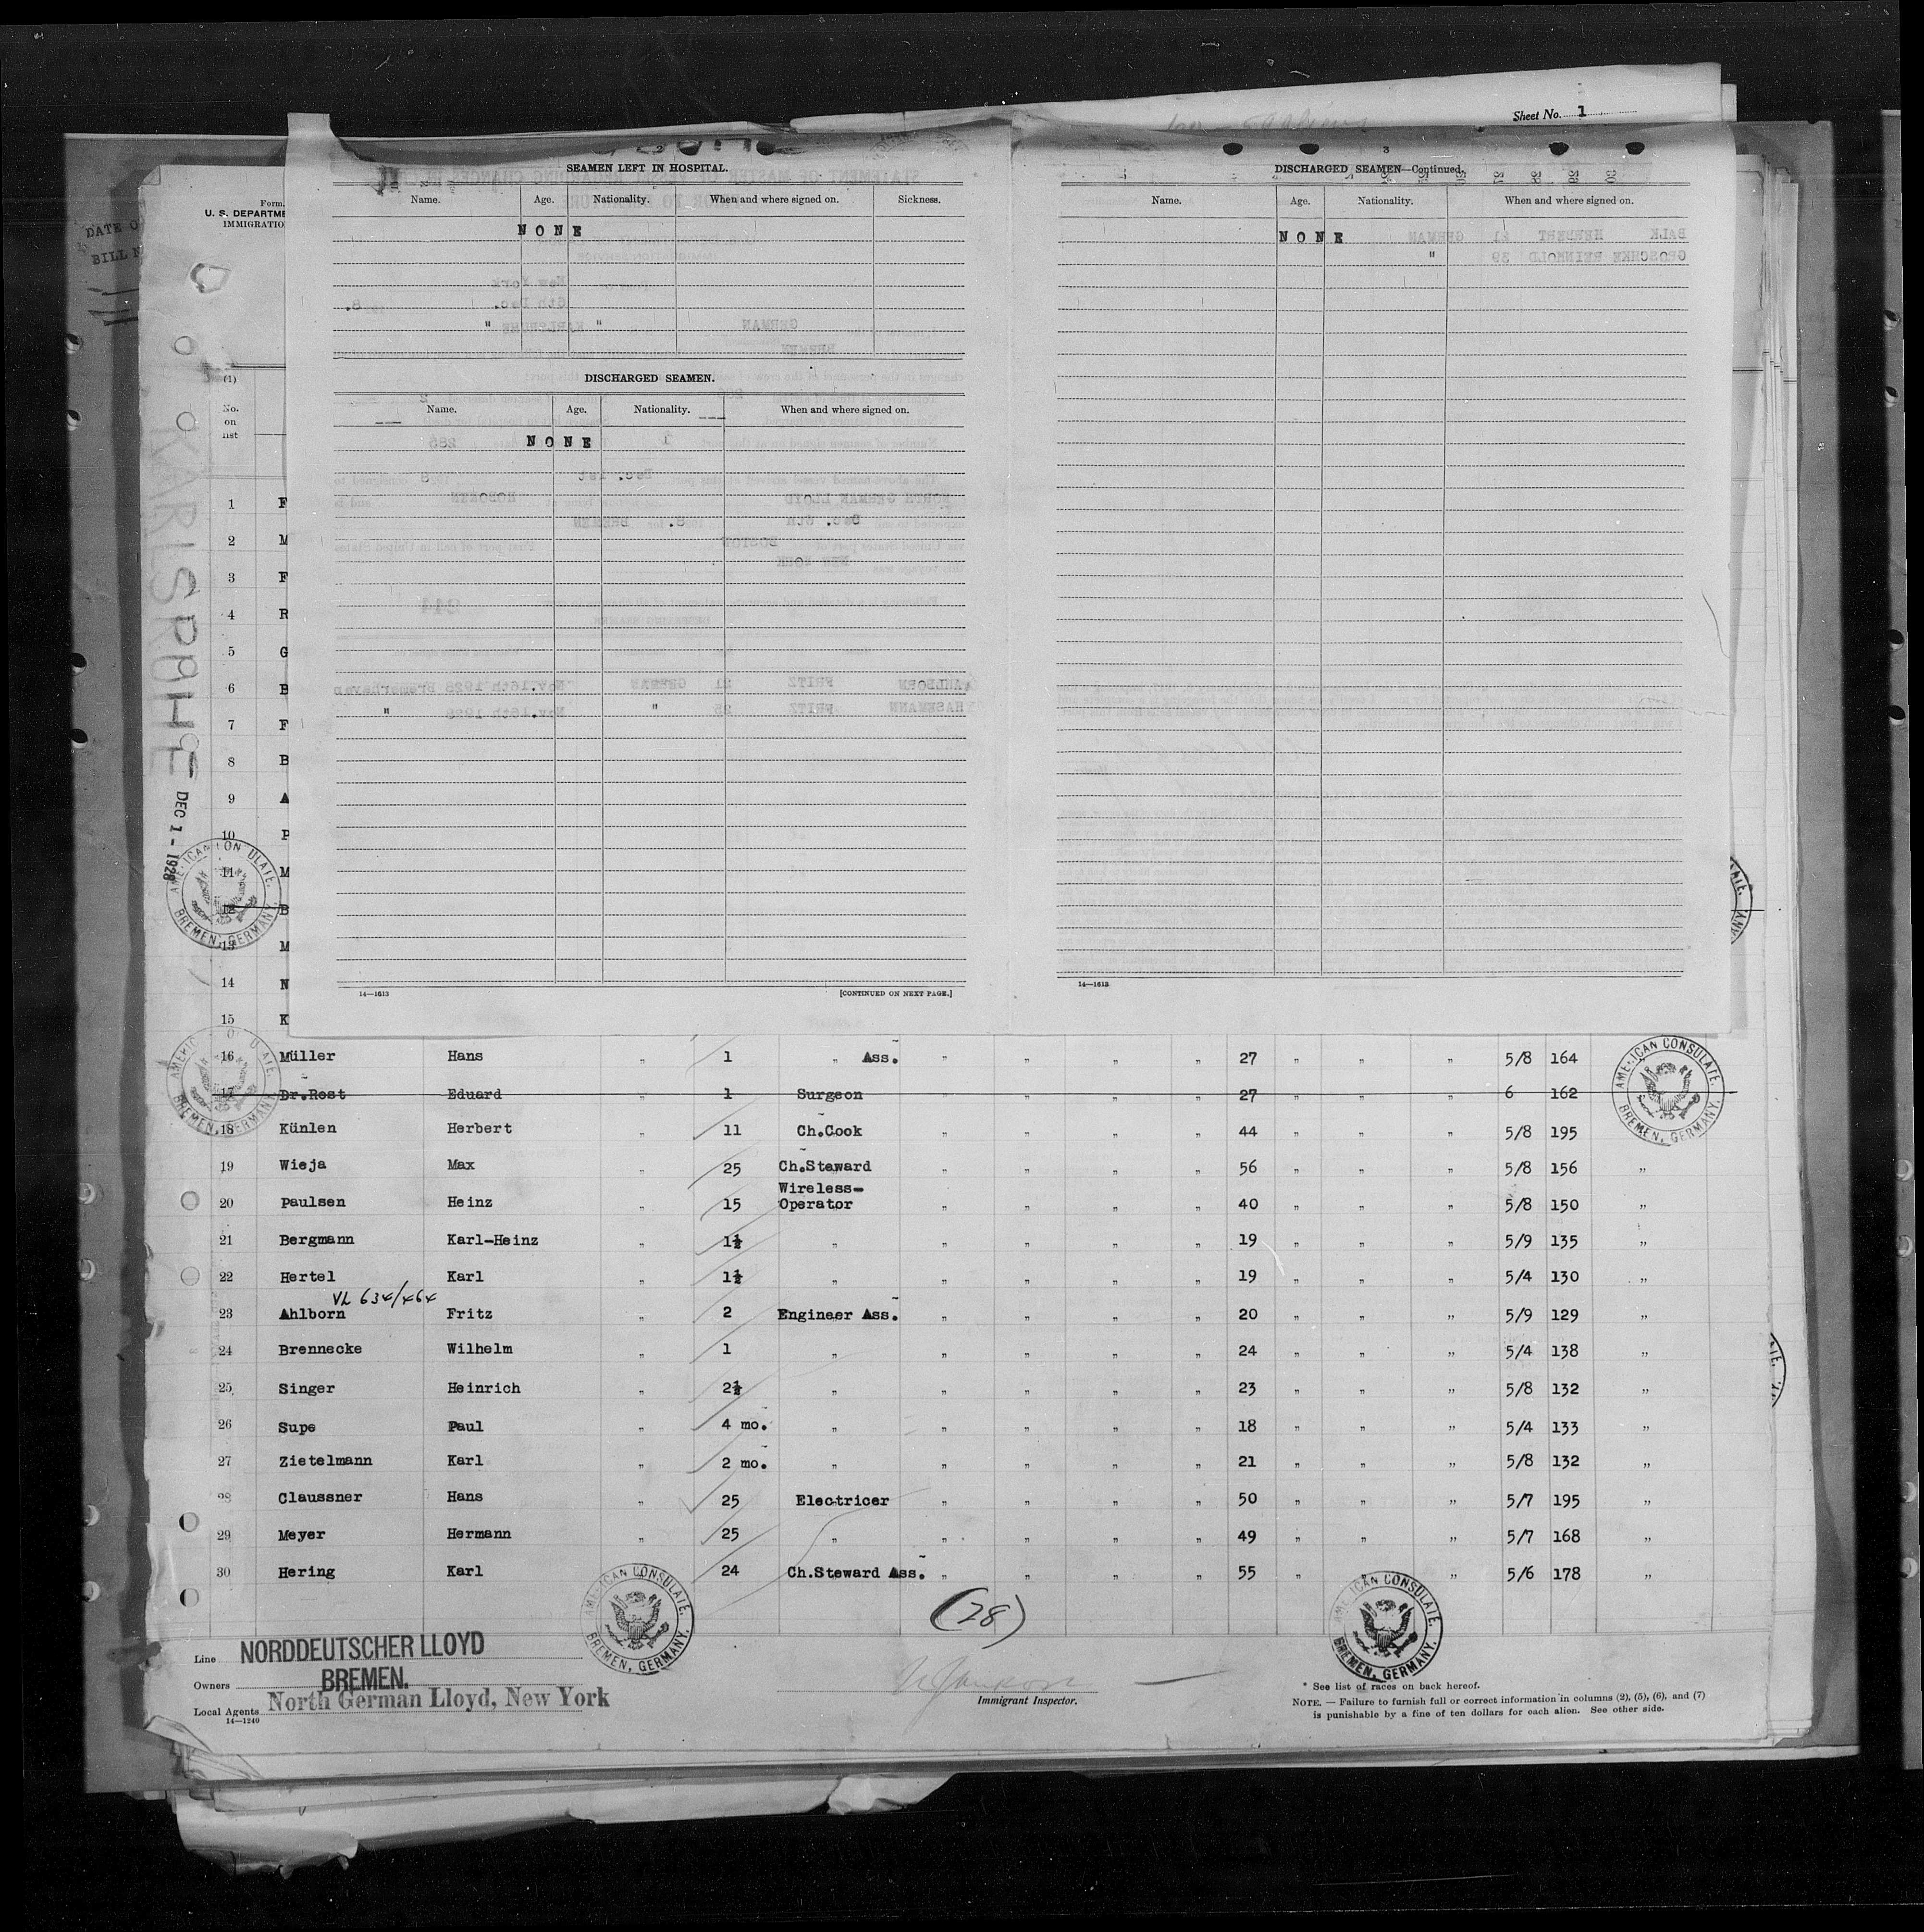 Sheet No. 1
2
SEAMEN LEFT IN HOSPITAL.
Name. Age. Nationality. When and where signed on. Sickness.
NONE
DISCHARGED SEAMEN.
Name. Age. Nationality. When and where signed on.
NONE
14—1613 [CONTINUED ON NEXT PAGE.]
3
DISCHARGED SEAMEN—Continued.
Name. Age. Nationality. When and where signed on.
NONE
14—1613
DATE O
BILL N
Form
U. S. DEPARTME
IMMIGRATIO
(1)
No.
on
list
KARLSRUHE
DEC 1 - 1928
1 F
2 M
3 F
4 R
5 G
6 B
7 F
8 B
9 A
10 P
11 M
12 B
13 M
14 N
15 K
16 Müller Hans " 1 " Ass. " " " " 27 " " " 5/8 164
17 Dr.Rost Eduard " 1 Surgeon " " " " 27 " " " 6 162
18 Künlen Herbert " 11 Ch.Cook " " " " 44 " " " 5/8 195
19 Wieja Max " 25 Ch.Steward " " " " 56 " " " 5/8 156 "
20 Paulsen Heinz " 15 Wireless-
Operator " " " " 40 " " " 5/8 150 "
21 Bergmann Karl-Heinz " 1½ " " " " " 19 " " " 5/9 135 "
22 Hertel Karl " 1½ " " " " " 19 " " " 5/4 130 "
VL 634/464
23 Ahlborn Fritz " 2 Engineer Ass. " " " " 20 " " " 5/9 129 "
24 Brennecke Wilhelm " 1 " " " " " 24 " " " 5/4 138 "
25 Singer Heinrich " 2½ " " " " " 23 " " " 5/8 132 "
26 Supe Paul " 4 mo. " " " " " 18 " " " 5/4 133 "
27 Zietelmann Karl " 2 mo. " " " " " 21 " " " 5/8 132 "
28 Claussner Hans " 25 Electricer " " " " 50 " " " 5/7 195 "
29 Meyer Hermann " 25 " " " " " 49 " " " 5/7 168 "
30 Hering Karl " 24 Ch.Steward Ass. " " " " 55 " " " 5/6 178 "
(28)
AMERICAN CONSULATE.
BREMEN, GERMANY.
AMERICAN CONSULATE.
BREMEN, GERMANY.
AMERICAN CONSULATE.
BREMEN, GERMANY.
AMERICAN CONSULATE.
BREMEN, GERMANY.
AMERICAN CONSULATE.
BREMEN, GERMANY.
Line NORDDEUTSCHER LLOYD
Owners BREMEN.
Local Agents North German Lloyd, New York
14—1240
Immigrant Inspector.
* See list of races on back hereof.
NOTE. — Failure to furnish full or correct information in columns (2), (5), (6), and (7)
is punishable by a fine of ten dollars for each alien. See other side.